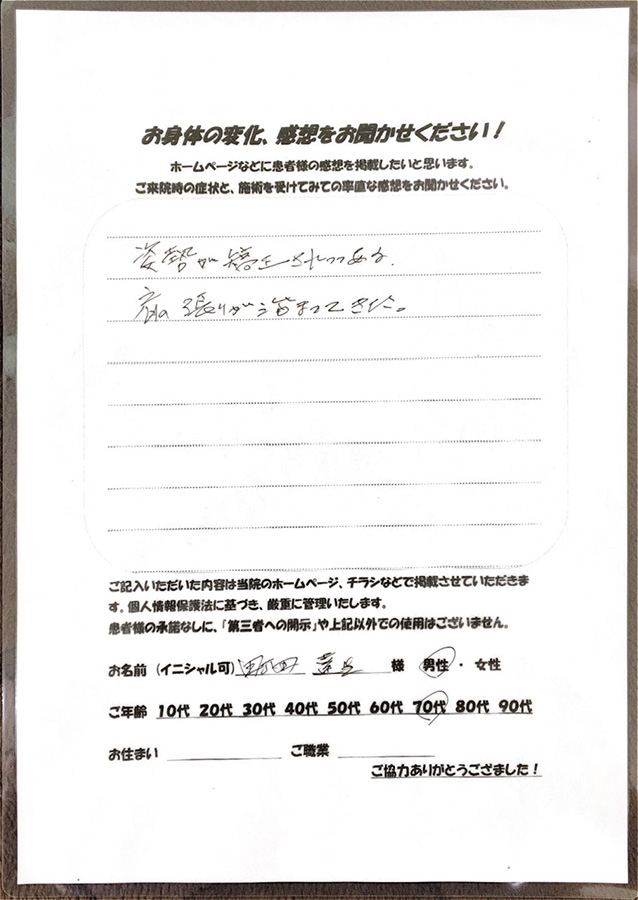 お身体の変化、感想をお聞かせください！
ホームページなどに患者様の感想を掲載したいと思います。
ご来院時の症状と、施術を受けてみての率直な感想をお聞かせください。
姿勢が矯正されつつある.
肩の張りが治まってきた。
ご記入いただいた内容は当院のホームページ、チラシなどで掲載させていただきま
す。個人情報保護法に基づき、厳重に管理いたします。
患者様の承諾なしに、「第三者への開示」や上記以外での使用はございません。
お名前（イニシャル可） 様 男性 ・ 女性
ご年齢 10代 20代 30代 40代 50代 60代 70代 80代 90代
お住まい ご職業
ご協力ありがとうござました！